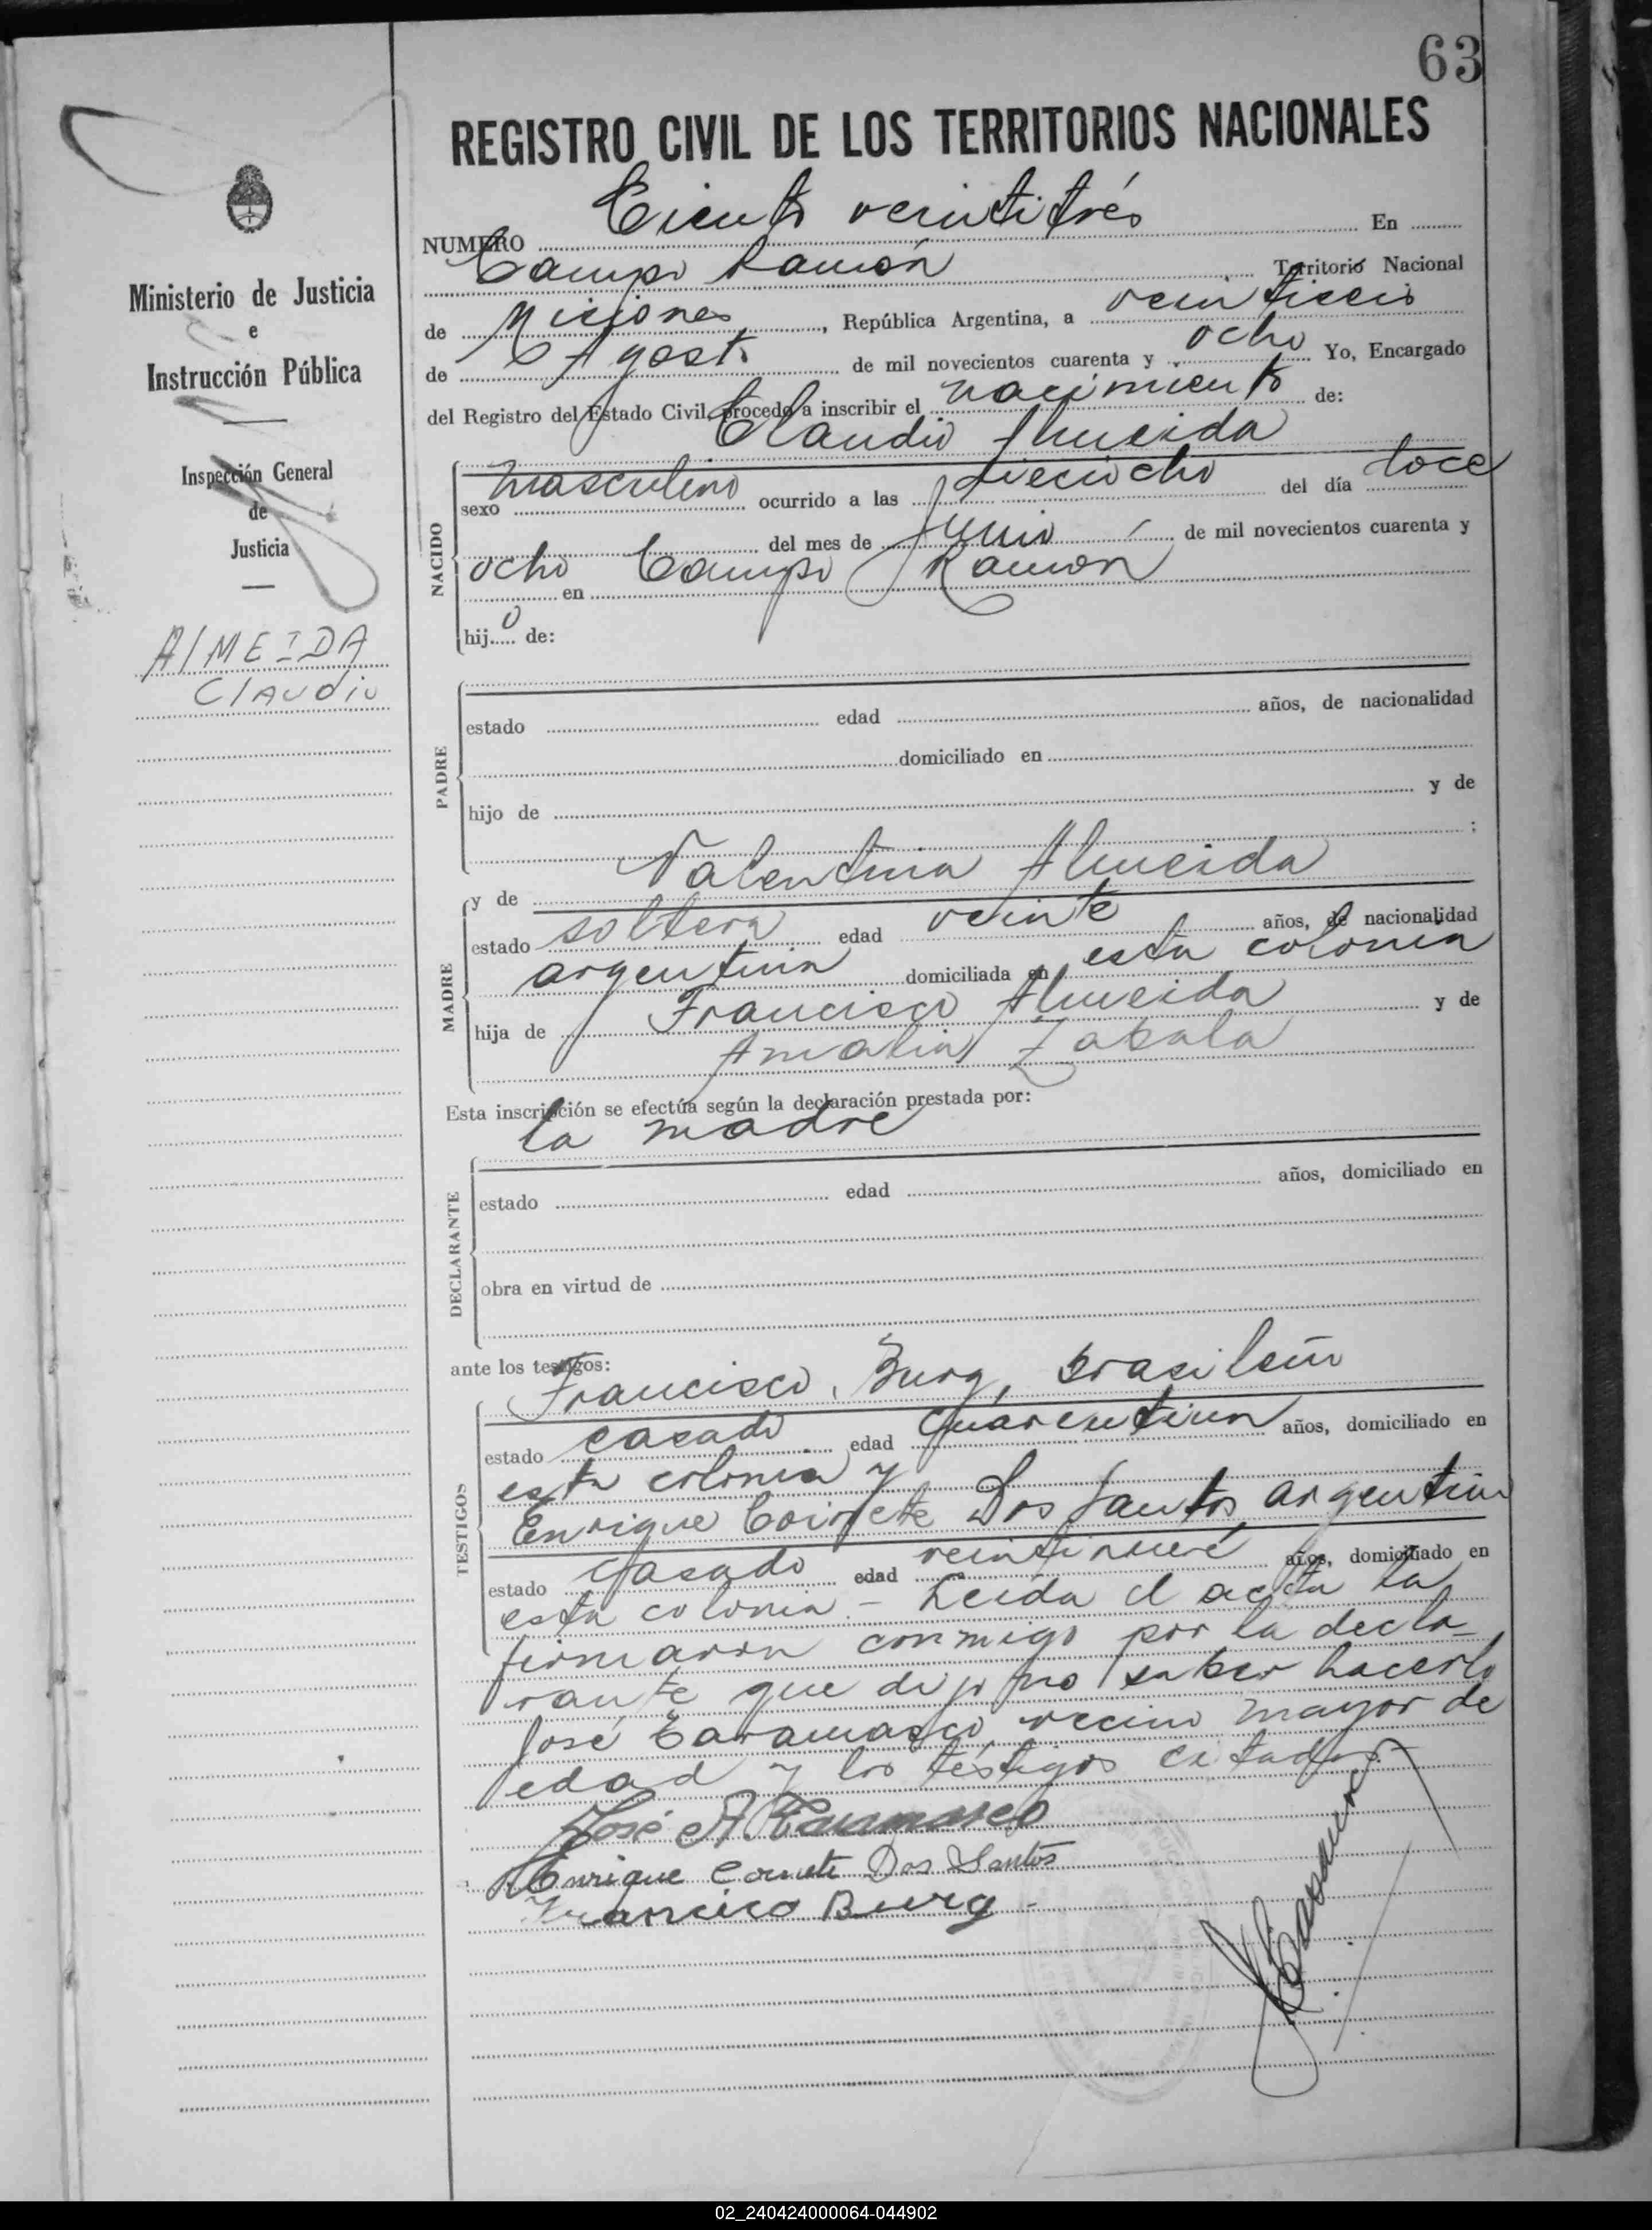 63
REGISTRO CIVIL DE LOS TERRITORIOS NACIONALES
Ministerio de Justicia
e
Instrucción Pública
Inspección General
de
Justicia
AlMEIDA
ClAudio
NUMERO Ciento veintitrés En
Campo Ramón Territorio Nacional
de Misiones, República Argentina, a veintiseis
de Agosto de mil novecientos cuarenta y ocho Yo, Encargado
del Registro del Estado Civil, procedo a inscribir el nacimiento de:
Claudio Almeida
NACIDO
sexo masculino ocurrido a las dieciocho del día doce
del mes de Junio de mil novecientos cuarenta y
ocho en Campo Ramón
hijo de:
PADRE
estado edad años, de nacionalidad
domiciliado en
hijo de y de
;
MADRE
y de Valentina Almeida
estado soltera edad veinte años, de nacionalidad
argentina domiciliada en esta colonia
hija de Francisco Almeida y de
Amalia Zabala
Esta inscripción se efectúa según la declaración prestada por:
la madre
DECLARANTE
estado edad años, domiciliado en
obra en virtud de
ante los testigos:
Francisco Burg, brasileño
TESTIGOS
estado casado edad cuarentiun años, domiciliado en
esta colonia y
Enrique Dos Santos, argentino
estado casado edad veintinueve años, domiciliado en
esta colonia.- Leída el acta la
firmaron conmigo por la decla-
rante que dijo no saber hacerlo
José Caramasco vecino mayor de
edad y los testigos citados.-
José A. Caramasco
Enrique Dos Santos
Francisco Burg
02_240424000064-044902